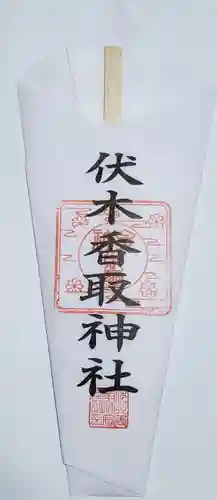 伏木香取神社